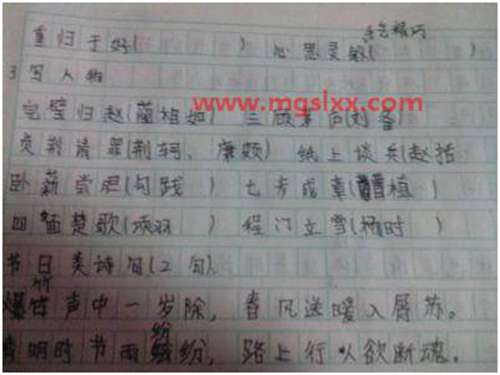 重归于好( ) 心思灵敏(
3写人物
www.mqslxx.com
完璧归赵(蔺相如) 三顾茅庐(刘备)
负荆请罪(荆轲、廉颇) 纸上谈兵(赵括
卧薪尝胆(勾践 ) 七步成章(曹植)
四面楚歌(项羽 ) 程门立雪(杨时)
节日美诗句(2句)
爆竹声中一岁除，春风送暖入屠苏。
清明时节雨纷纷，路上行人欲断魂。